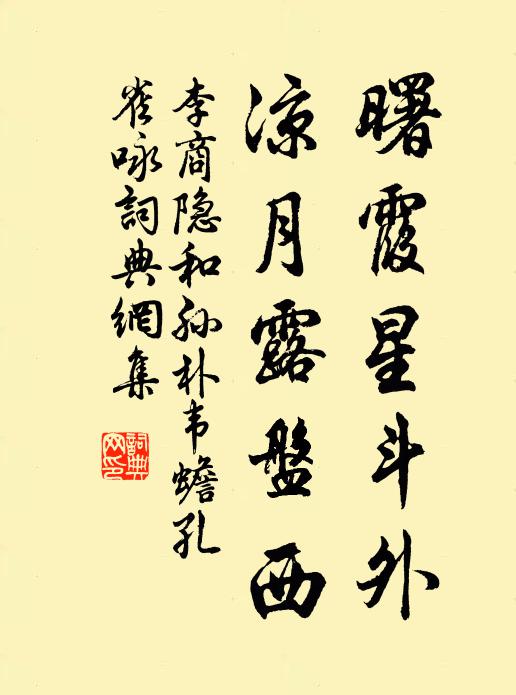 曙霞星斗外
涼月露盤西
李商隐和孙朴韦蟾孔
雀咏詞典網集
詞典
网印